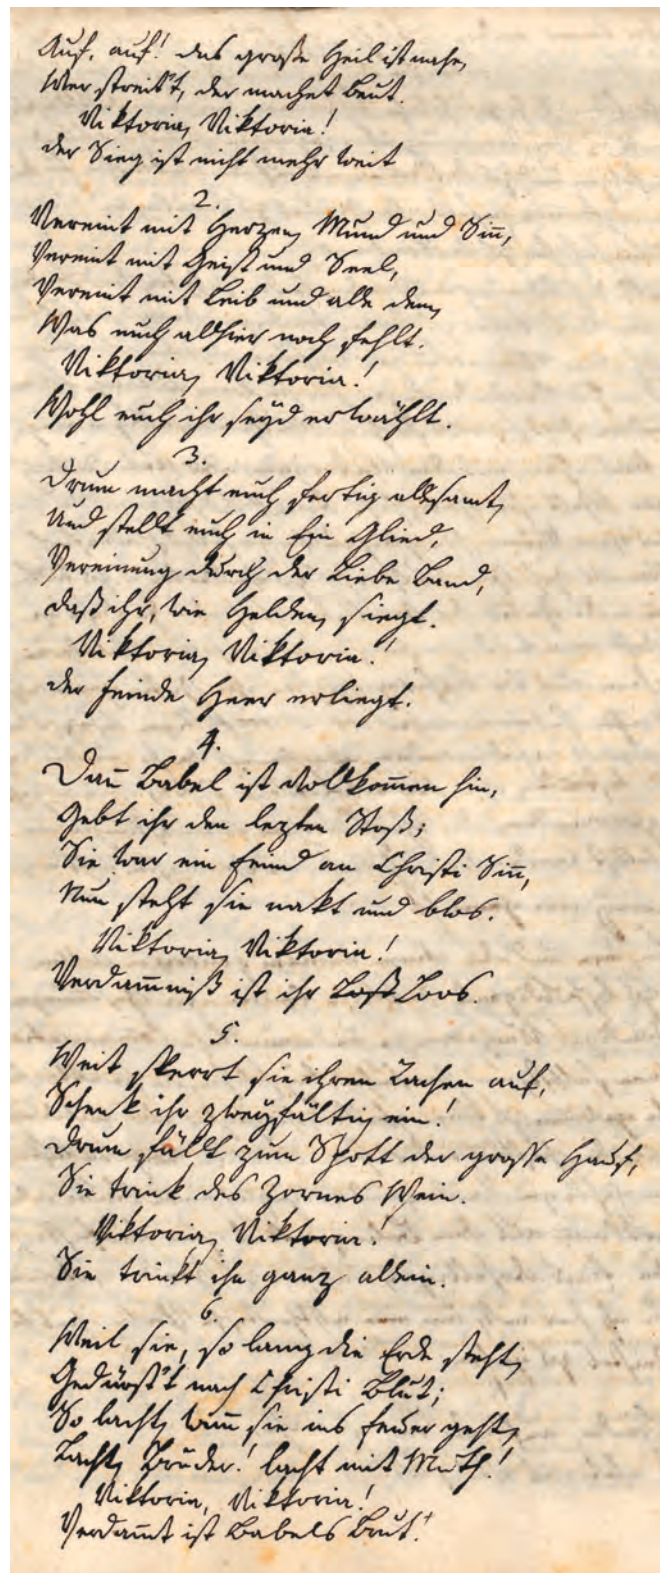 Auf, auf! das große Heil ist nahe,
Wer streit't, der machet Beut.
Viktoria, Viktoria!
der Sieg ist nicht mehr weit
2.
Vereint mit Herzen, Mund und Siñ,
Vereint mit Geist und Seel,
Vereint mit Leib und alle dem,
Was euch allhier noch fehlt.
Viktoria, Viktoria!
Wohl euch ihr seyd erwählt.
3.
Drum macht euch fertig allesamt,
Und stellt euch in Ein Glied,
Vereinung durch der Liebe Band,
daß ihr, wie Helden, siegt.
Viktoria, Viktoria!
der Feinde Heer erliegt.
4.
Dañ Babel ist vollkom̃en hin,
Gebt ihr den lezten Stoß;
Sie war ein Feind an Christi Siñ,
Nun steht sie nakt und blos.
Viktoria, Viktoria!
Verdam̃niß ist ihr Loos.
5.
Weit sperrt sie ihren Rachen auf,
Schenk ihr zweyfältig ein!
Drum fällt zum Spott der grosse Hauf,
Sie trink des Zornes Wein.
Viktoria, Viktoria!
Sie trinkt ihn ganz allein.
6.
Weil sie, so lang die Erde steht,
Gedürst't nach Christi Blut;
So lacht, wann sie ins Feuer geht,
Lacht, Brüder! lacht mit Muth!
Viktoria, Viktoria!
Verdam̃t ist Babels Brut!